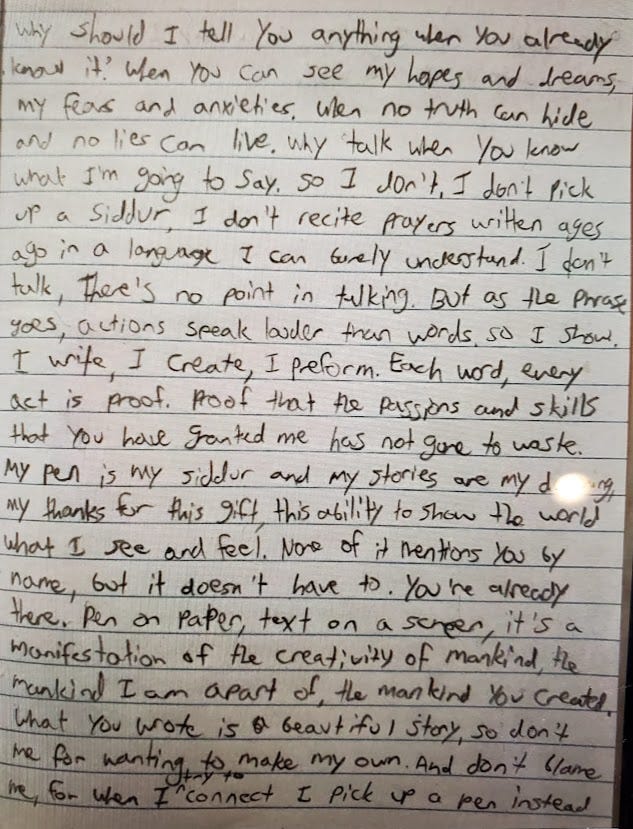 Why should I tell You anything when You already
know it? When You can see my hopes and dreams,
my fears and anxieties. When no truth can hide
and no lies can live. Why talk when You know
what I'm going to say. So I don't. I don't pick
up a siddur, I don't recite prayers written ages
ago in a language I can barely understand. I don't
talk, There's no point in talking. But as the phrase
goes, actions speak louder than words. so I show.
I write, I create, I preform. Each word, every
act is proof. Proof that the passions and skills
that You have granted me has not gone to waste.
My pen is my siddur and my stories are my
my thanks for this gift, this ability to show the world
what I see and feel. None of it mentions You by
name, but it doesn't have to. You're already
there. Pen on paper, text on a screen, it's a
manifestation of the creativity of mankind, the
mankind I am apart of, the mankind You created.
What You wrote is a beautiful story, so don't
me for wanting to make my own. And don't blame
me, for when I ^try to connect I pick up a pen instead